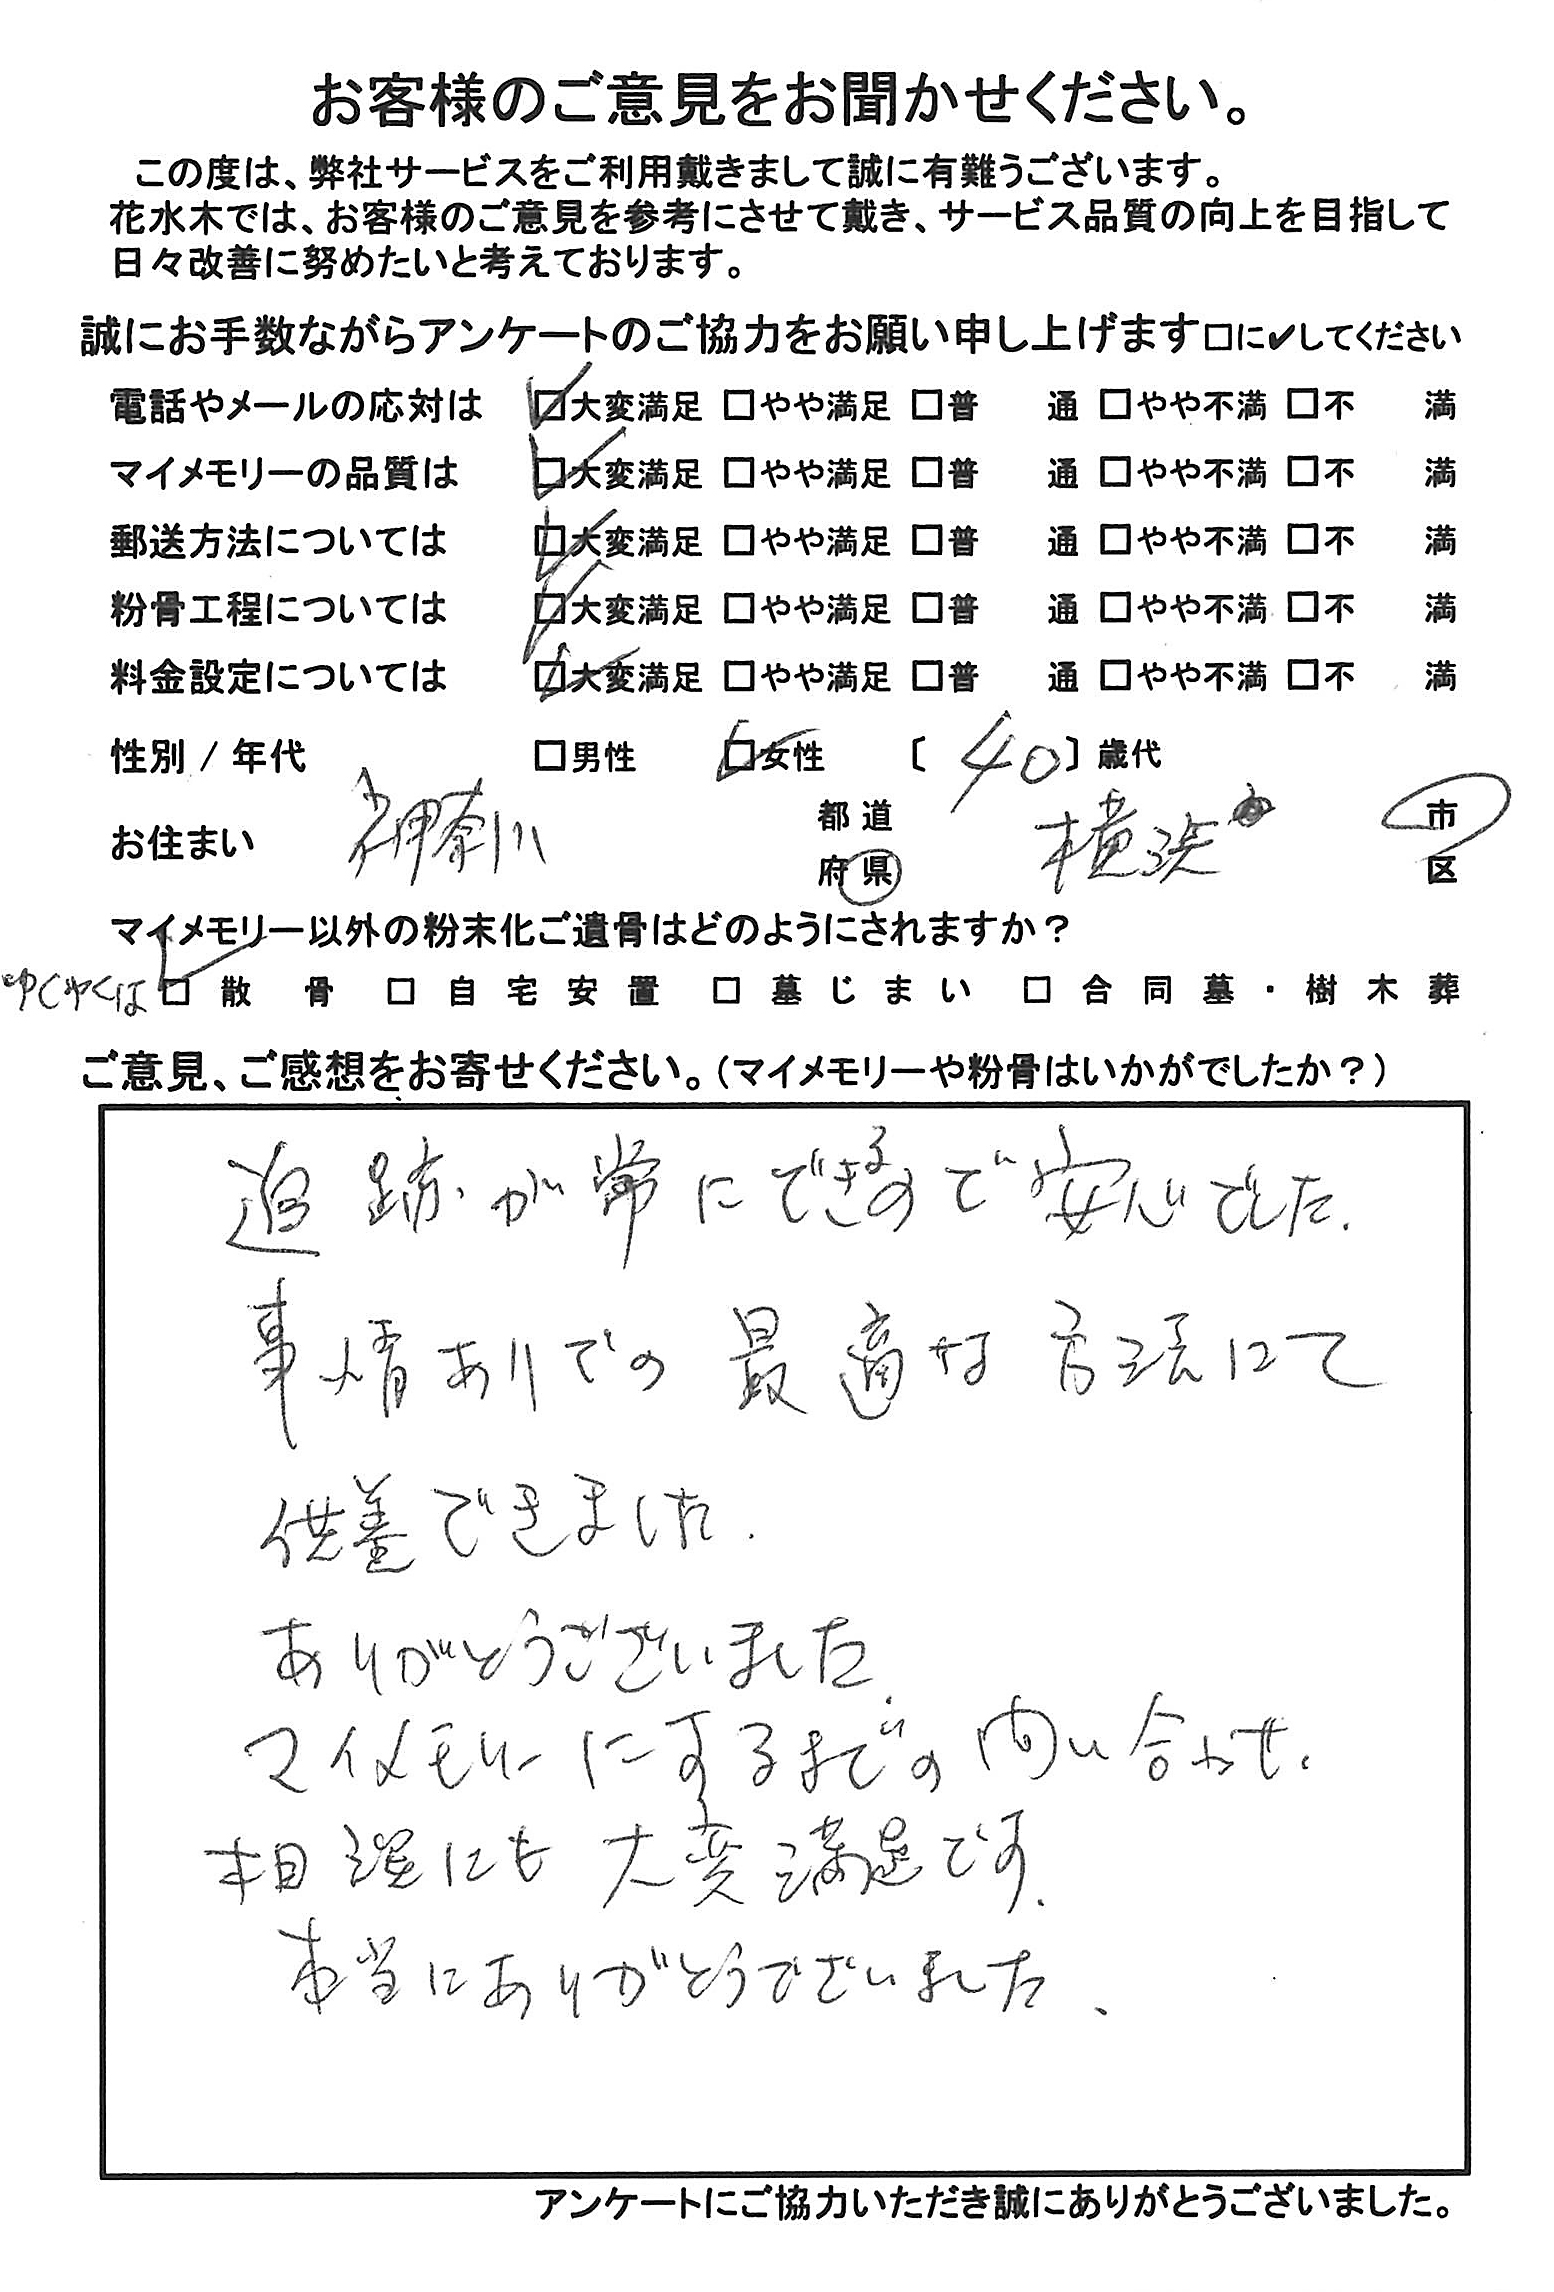 お客様のご意見をお聞かせください。
この度は、弊社サービスをご利用戴きまして誠に有難うございます。
花水木では、お客様のご意見を参考にさせて戴き、サービス品質の向上を目指して
日々改善に努めたいと考えております。
誠にお手数ながらアンケートのご協力をお願い申し上げます□に✔してください
電話やメールの応対は ☑大変満足 □やや満足 □普 通 □やや不満 □不 満
マイメモリーの品質は ☑大変満足 □やや満足 □普 通 □やや不満 □不 満
郵送方法については ☑大変満足 □やや満足 □普 通 □やや不満 □不 満
粉骨工程については ☑大変満足 □やや満足 □普 通 □やや不満 □不 満
料金設定については ☑大変満足 □やや満足 □普 通 □やや不満 □不 満
性別 / 年代 □男性 ☑女性 〔 40 〕歳代
お住まい 神奈川 都道府県 横浜 市区
マイメモリー以外の粉末化ご遺骨はどのようにされますか？
ゆくゆくは ☑ 散骨 □ 自宅安置 □ 墓じまい □ 合同墓・樹木葬
ご意見、ご感想をお寄せください。（マイメモリーや粉骨はいかがでしたか？）
追跡が常にできるので安心でした.
事情ありでの最適な方法にて
供養できました.
ありがとうございました.
マイメモリーにするまでの問い合わせ、
相談にも大変満足です.
本当にありがとうございました、
アンケートにご協力いただき誠にありがとうございました。